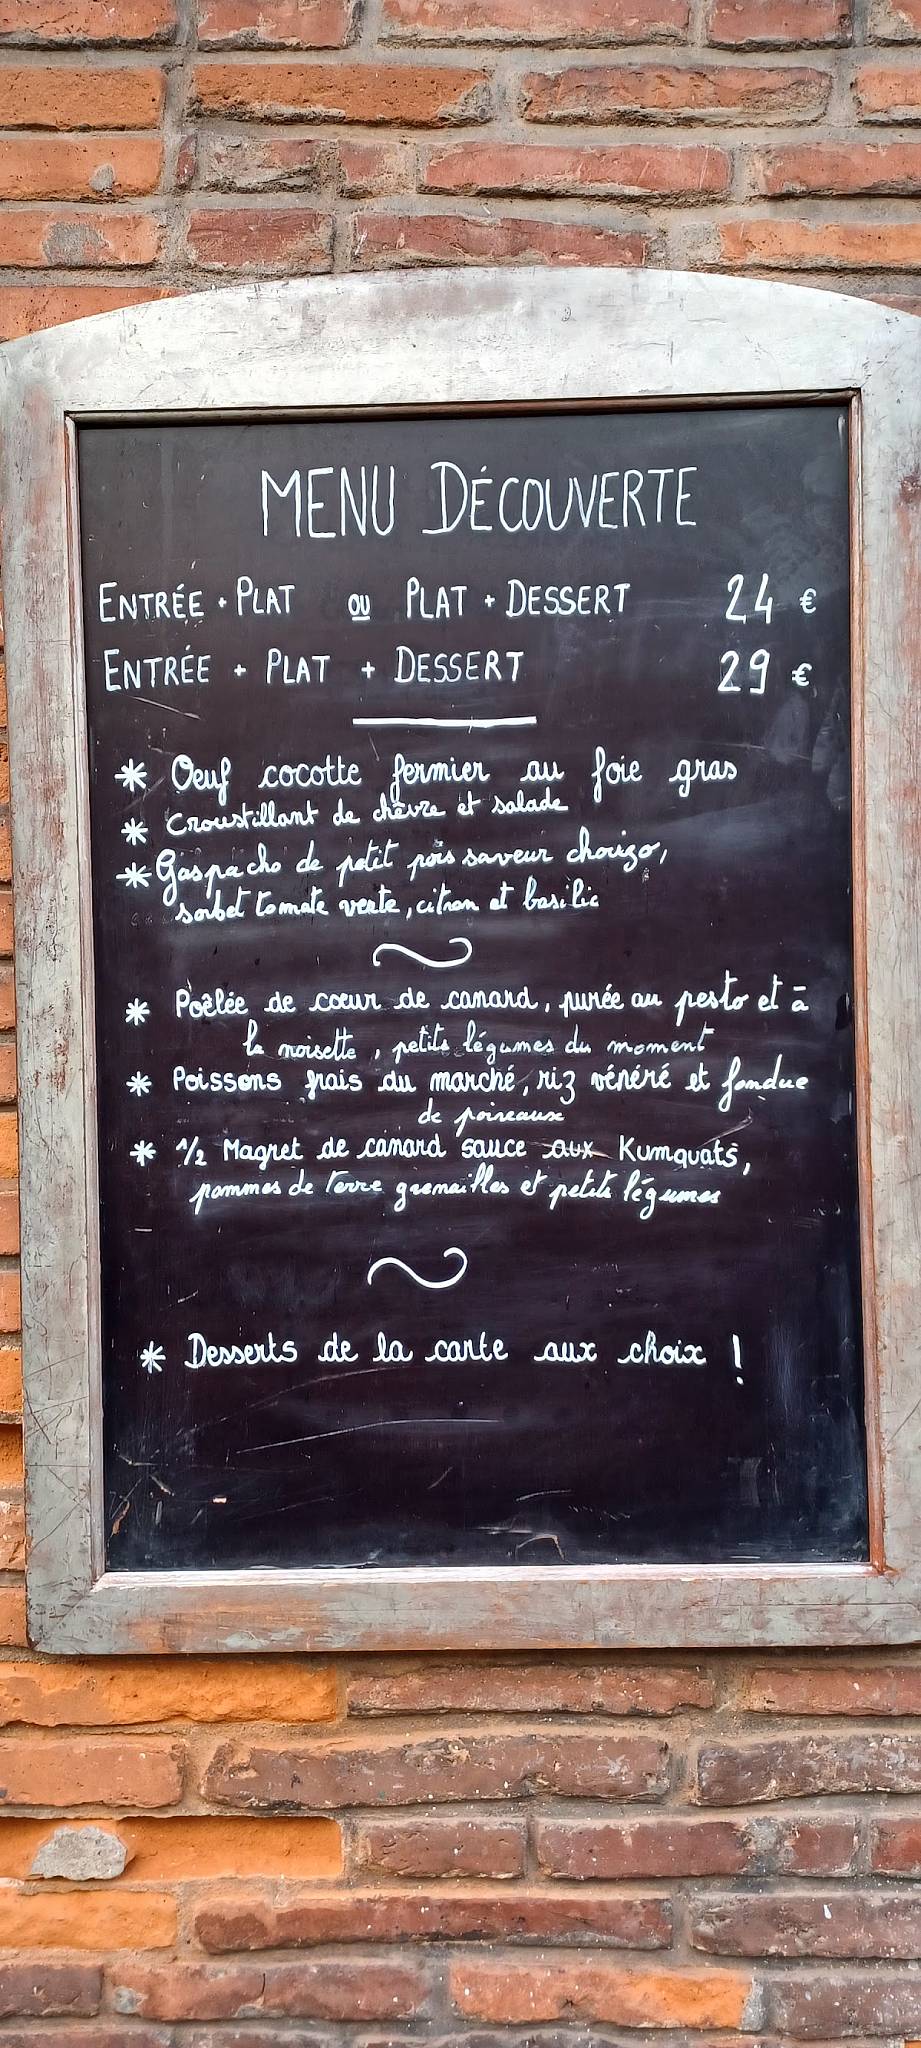 MENU DÉCOUVERTE
ENTRÉE + PLAT OU PLAT + DESSERT 24 €
ENTRÉE + PLAT + DESSERT 29 €
* Oeuf cocotte fermier au foie gras
* Croustillant de chèvre et salade
* Gaspacho de petit pois saveur chorizo,
sorbet tomate verte, citron et basilic
* Poêlée de cœur de canard, purée au pesto et à
la noisette, petits légumes du moment
* Poissons frais du marché, riz vénéré et fondue
de poireaux
* 1/2 Magret de canard sauce aux Kumquats,
pommes de terre grenailles et petits légumes
* Desserts de la carte aux choix !